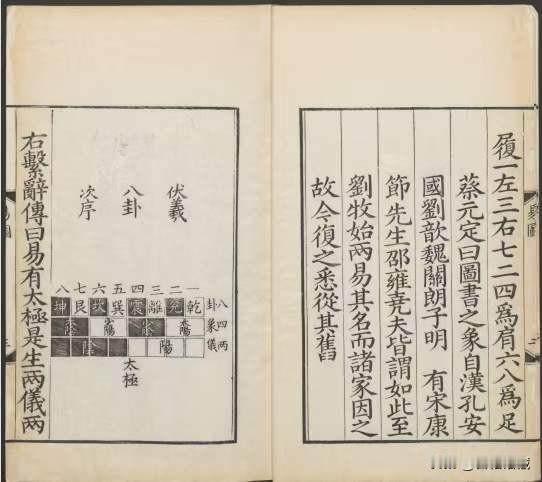 履一左三右七二四爲肩六八爲足
蔡元定曰圖書之象自漢孔安
國劉歆魏關朗子明　有宋康
節先生邵雍堯夫皆謂如此至
劉牧始兩易其名而諸家因之
故今復之悉從其舊
易圖
二
伏羲
八卦
次序
一二三四五六七八
乾兌離震巽坎艮坤
八卦
四象
兩儀
陽
陰
太極
右繫辭傳曰易有太極是生兩儀兩
易圖
三